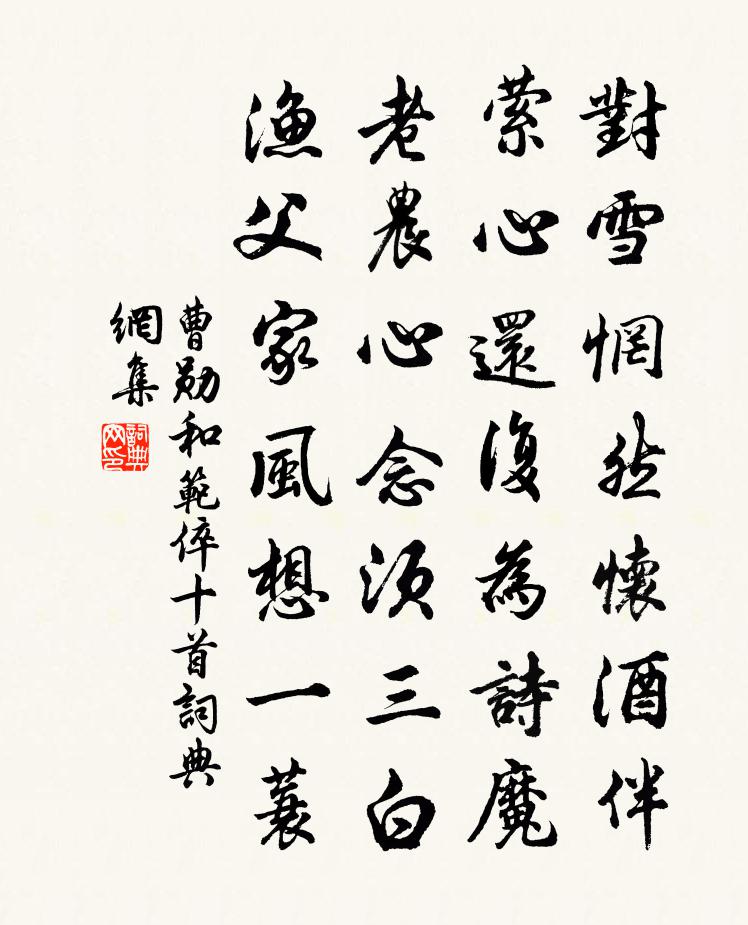 對雪惘然懷酒伴
縈心還復為詩魔
老農心念須三白
漁父家風想一蓑
曹勛和範倅十首詞典
網集
詞典網印